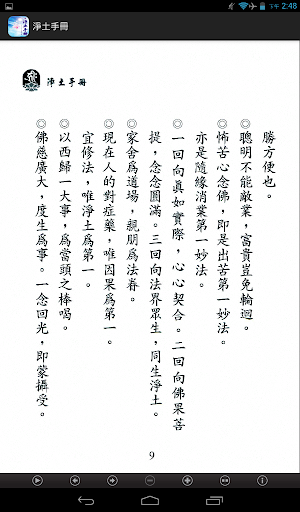 2:48
淨土手冊
淨土手冊
勝方便也。
◎聰明不能敵業，富貴豈免輪迴。
◎怖苦心念佛，即是出苦第一妙法。
亦是隨緣消業第一妙法。
◎一回向眞如實際，心心契合。二回向佛果菩
提，念念圓滿。三回向法界眾生，同生淨土。
◎家舍爲道場，親朋爲法眷。
◎現在人的對症藥，唯因果爲第一。
宜修法，唯淨土爲第一。
◎以西歸一大事，爲當頭之棒喝。
◎佛慈廣大，度生爲事。一念回光，即蒙攝受。
9